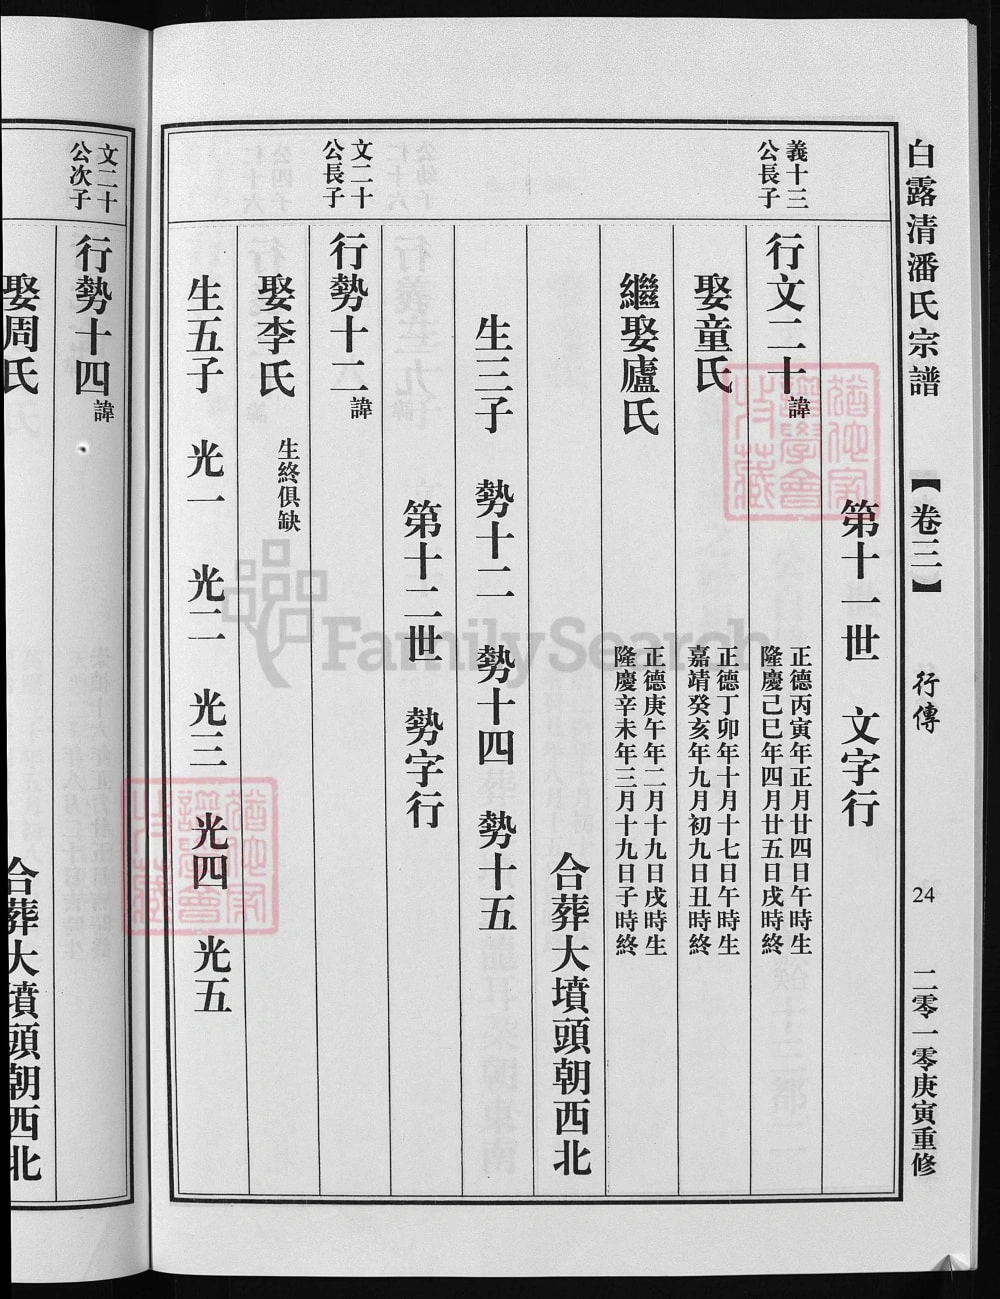 白露清潘氏宗譜
【卷三】
行傳
24
二零一零庚寅重修
第十一世　文字行
義十三
公長子
行文二十諱
正德丙寅年正月廿四日午時生
隆慶己巳年四月廿五日戌時終
娶童氏
正德丁卯年十月十七日午時生
嘉靖癸亥年九月初九日丑時終
繼娶廬氏
正德庚午年二月十九日戌時生
隆慶辛未年三月十九日子時終
合葬大墳頭朝西北
生三子　勢十二　勢十四　勢十五
第十二世　勢字行
文二十
公長子
行勢十二諱
娶李氏
生終俱缺
生五子　光一　光二　光三　光四　光五
文二十
公次子
行勢十四諱
娶周氏
合葬大墳頭朝西北
FamilySearch